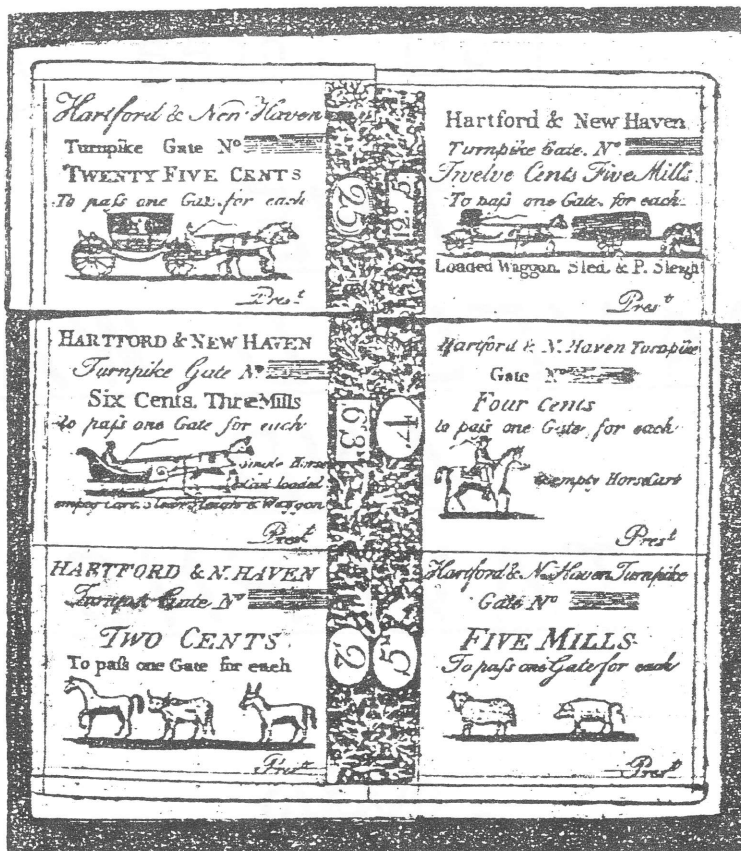 Hartford & New Haven
Turnpike Gate No
TWENTY FIVE CENTS
To paſs one Gate for each
Prest
25
Hartford & New Haven
Turnpike Gate. No
Twelve Cents Five Mills
To paſs one Gate for each
Loaded Waggon. Sled. & P. Sleigh
Prest
12.5
HARTFORD & NEW HAVEN
Turnpike Gate No
Six Cents. Three Mills
to paſs one Gate for each
Single Horse
loaded
empty Cart, Sleigh & Waggon
Prest
6.3
Hartford & N. Haven Turnpike
Gate No
Four Cents
to paſs one Gate for each
empty Horse Cart
Prest
4
HARTFORD & N. HAVEN
Turnpk Gate No
TWO CENTS
To paſs one Gate for each
Prest
2
Hartford & N. Haven Turnpike
Gate No
FIVE MILLS
To paſs one Gate for each
Prest
5